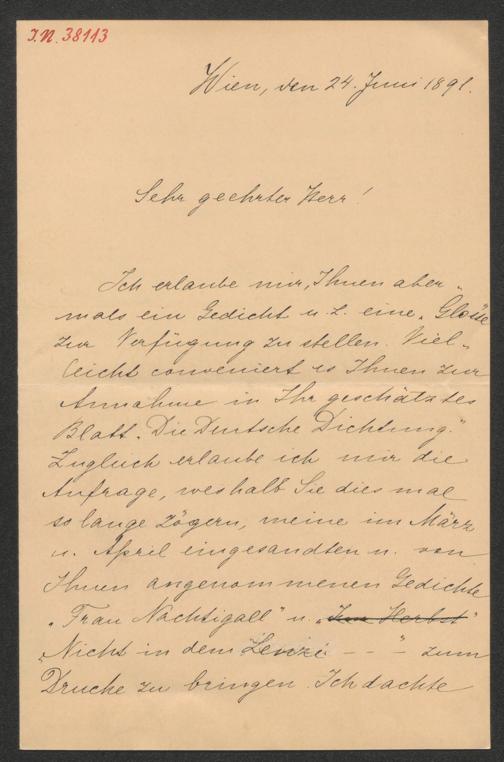 I.N. 38113
Wien, den 24. Juni 1891.
Sehr geehrter Herr!
Ich erlaube mir, Ihnen aber-
mals ein Gedicht u. z. eine „Glosse"
zur Verfügung zu stellen. Viel-
leicht conveniert es Ihnen zur
Annahme in Ihr geschätztes
Blatt „Die Deutsche Dichtung."
Zugleich erlaube ich mir die
Anfrage, weshalb Sie dies mal
so lange zögern, meine im März
u. April eingesandten u. von
Ihnen angenommenen Gedichte
„Frau Nachtigall" u. „Im Herbst"
„Nicht in dem Lenze - - " zum
Drucke zu bringen. Ich dachte